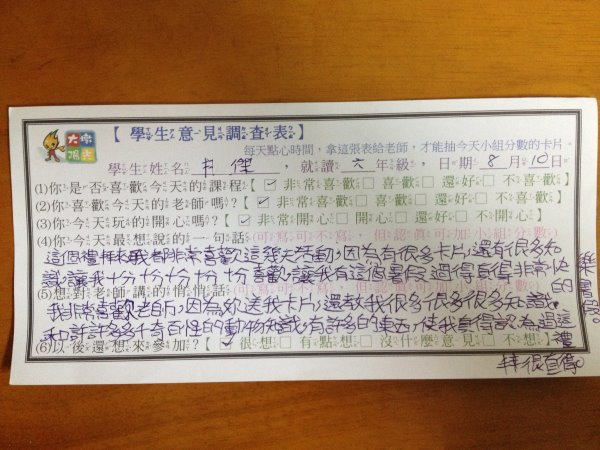 【學生意見調查表】
每天點心時間，拿這張表給老師，才能抽今天小組分數的卡片。
學生姓名 傑，就讀六年級，日期8月10日
(1)你是否喜歡今天的課程【✓非常喜歡□喜歡□還好□不喜歡】
(2)你喜歡今天的老師嗎？【✓非常喜歡□喜歡□還好□不喜歡】
(3)你今天玩的開心嗎？【✓非常開心□開心□還好□不開心】
(4)你今天最想說的一句話(可寫可不寫，但認真可加小組分數)
這個禮拜來我都非常喜歡這幾天活動，因為有很多卡片，還有很多知
識，讓我十分十分十分十分喜歡，讓我有這個暑假過得真得非常快
樂的暑假。
(5)想對老師講的悄悄話
我非常喜歡老師，因為妳送我卡片，還教我很多很多很多知識
和許許多多千奇百怪的動物知識，有許多的東西，使我真得認為過這禮
拜很值得。
(6)以後還想來參加？【✓很想□有點想□沒什麼意見□不想】